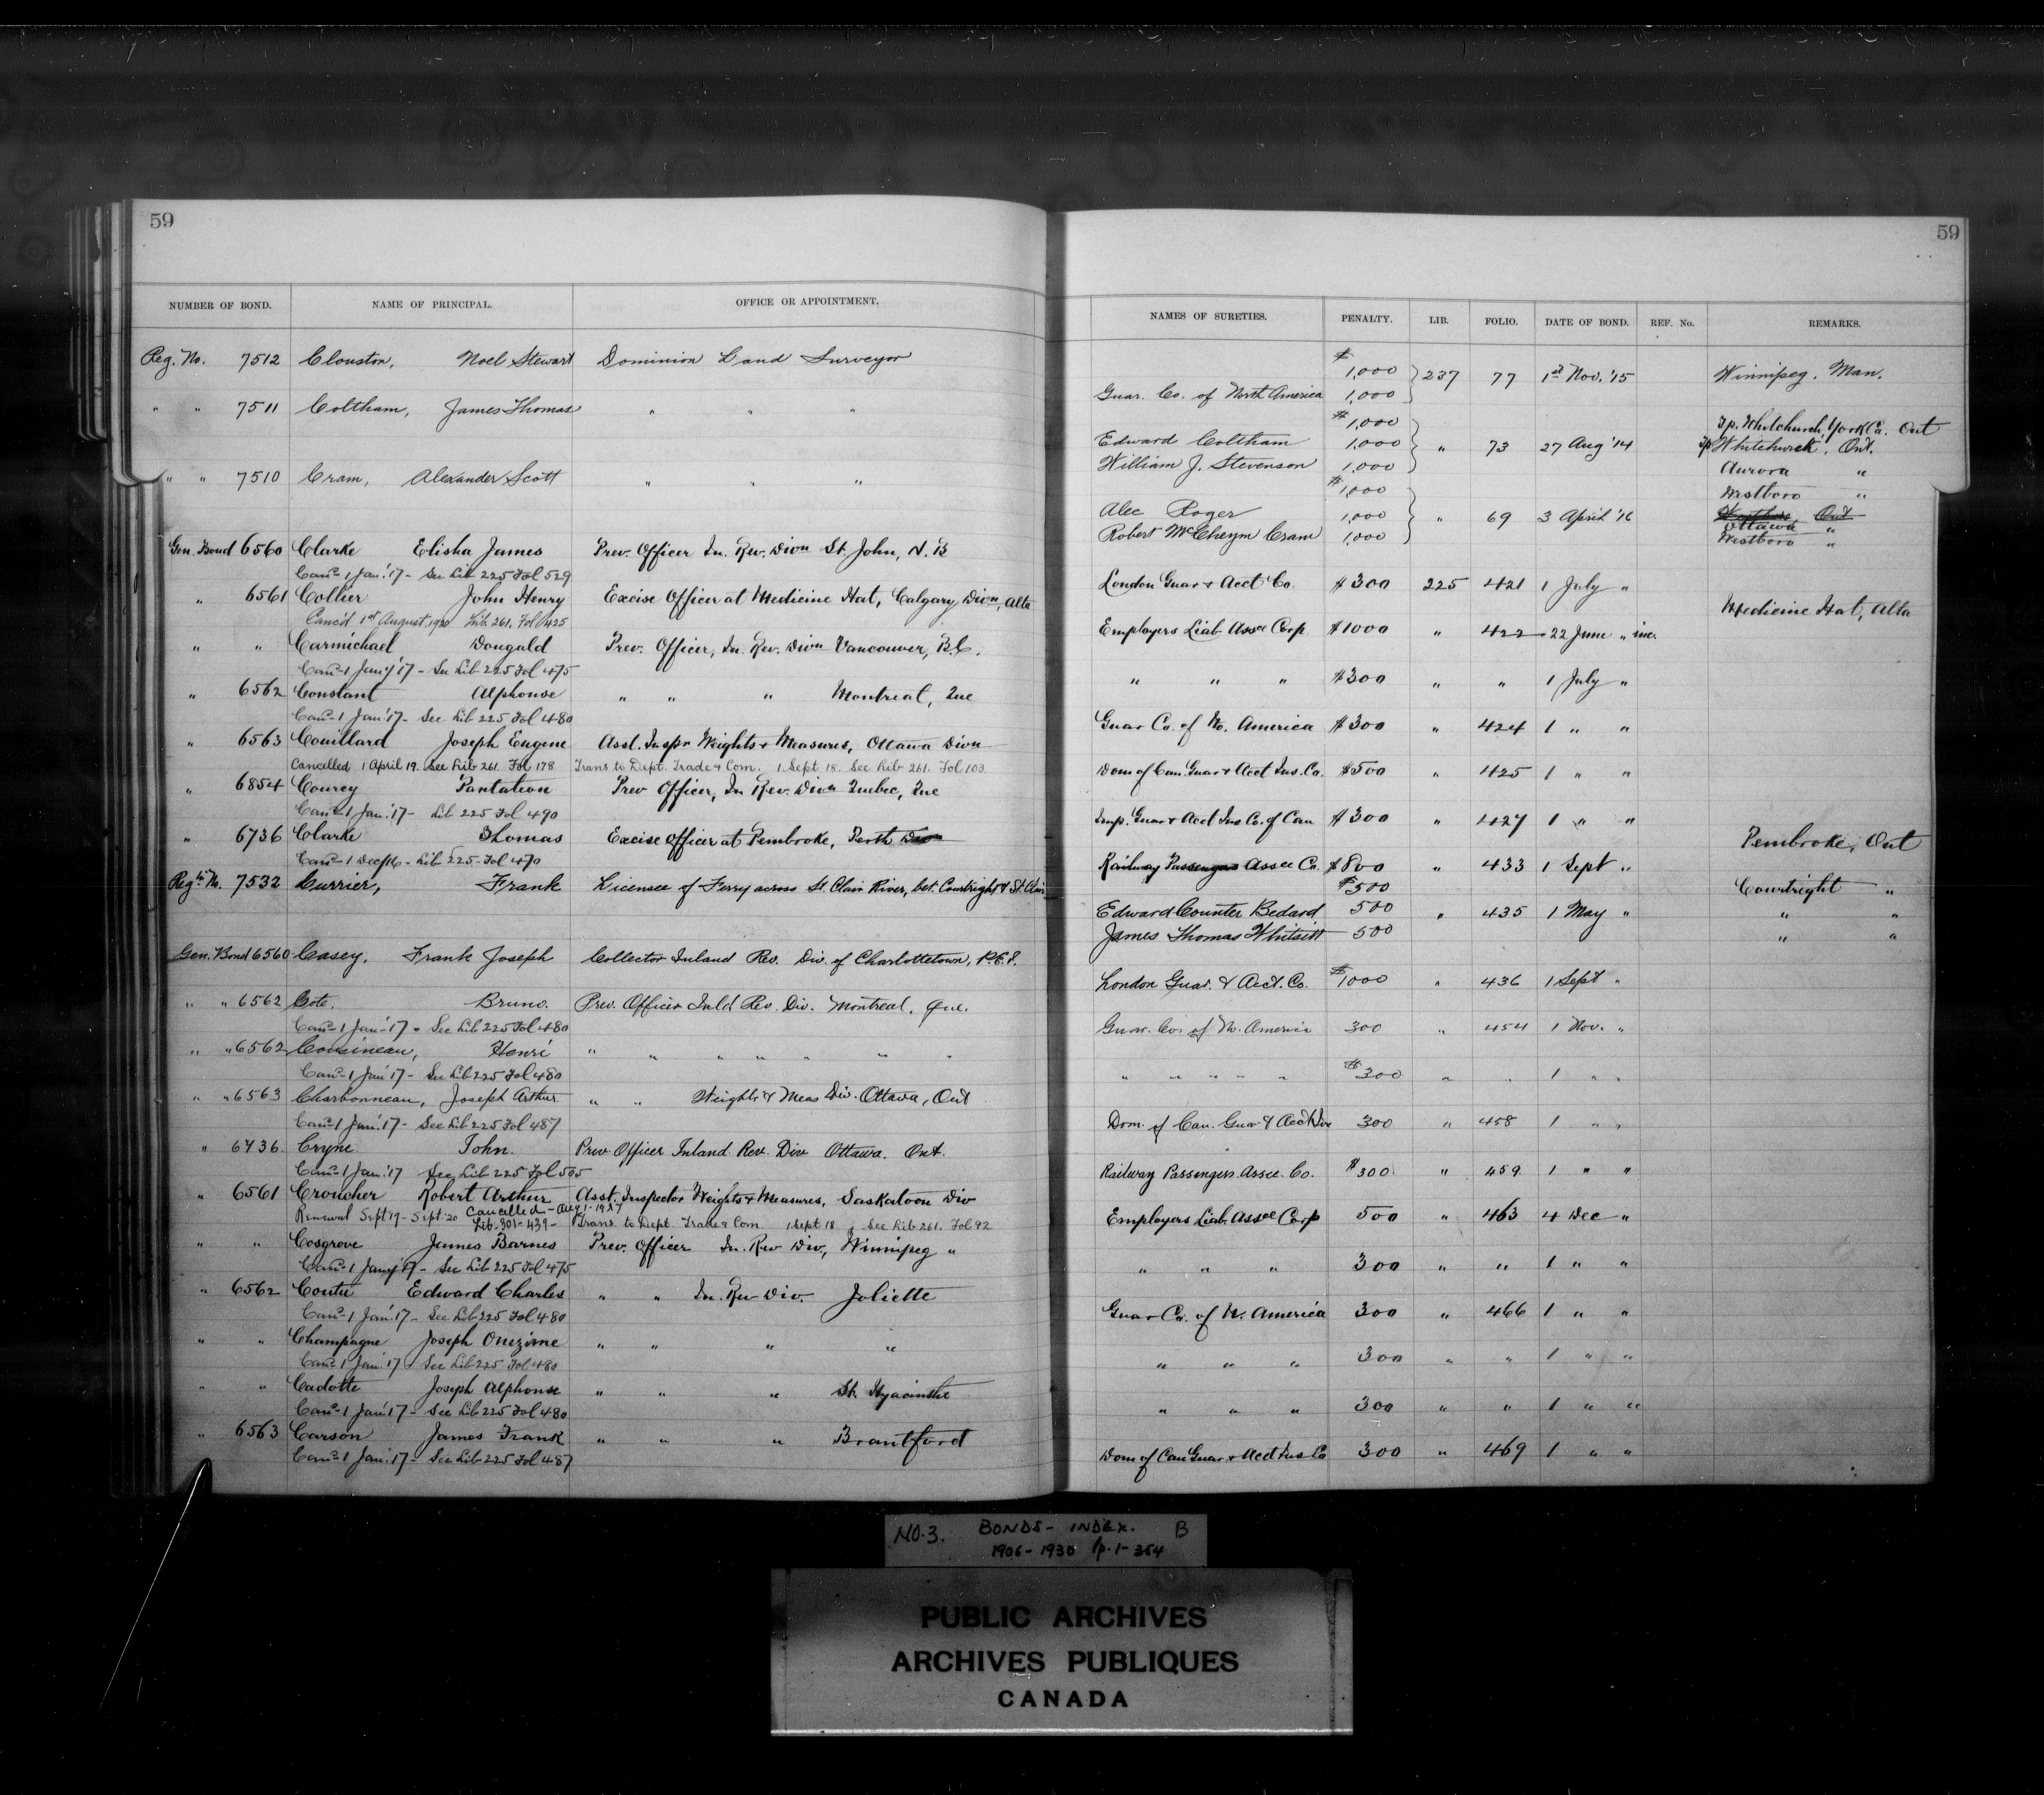 59
NUMBER OF BOND. NAME OF PRINCIPAL. OFFICE OR APPOINTMENT.
Reg. No. 7512 Clouston, Noel Stewart Dominion Land Surveyor
" " 7511 Coltham, James Thomas " " "
" " 7510 Cram, Alexander Scott " " "
Gen. Bond 6560 Clarke Elisha James Prev. Officer In. Rev. Divn St. John, N.B
Canc- 1 Jan.'17 - See Lib 225 Fol 529
" 6561 Collier John Henry Excise Officer at Medicine Hat, Calgary Divn, Alta
Canc'd 1st August. 1920 Lib 261. Fol 425
" " Carmichael Dougald Prev. Officer, In. Rev. Divn Vancouver, B.C.
Canc- 1 Jany '17 - See Lib 225 Fol 475
" 6562 Constant Alphonse " " " Montreal, Que
Canc- 1 Jan'17 - See Lib 225 Fol 480
" 6563 Couillard Joseph Eugene Asst. Inspr Weights & Measures, Ottawa Divn
Cancelled 1 April 19. See Lib 261. Fol 178 Trans to Dept. Trade & Com. 1 Sept 18. See Lib 261. Fol 103
" 6854 Courcy Pantation Prev Officer, In Rev. Divn Quebec, Que
Canc- 1 Jan.'17 - Lib 225 Fol 490
" 6736 Clarke Thomas Excise Officer at Pembroke, Perth Divn
Canc- 1 Dec/16 - Lib 225 - Fol 470
Regtn No. 7532 Currier, Frank Licensee of Ferry across St. Clair River, bet. Courtright & St. Clair
Gen. Bond 6560 Casey, Frank Joseph Collector Inland Rev. Div. of Charlottetown, P.E.I.
" " 6562 Cote. Bruno. Prev. Officer Inld Rev. Div. Montreal, Que.
Canc- 1 Jan'17 - See Lib 225 Fol 480
" " 6562 Cousineau, Henri " " " " " " "
Canc- 1 Jan'17 - See Lib 225 Fol 480
" " 6563 Charbonneau, Joseph Arthur " " Weights & Meas Div. Ottawa, Ont
Canc- 1 Jan.'17 - See Lib 225 Fol 487
" 6736. Cryne John. Prev. Officer Inland Rev. Div Ottawa. Ont.
Canc- 1 Jan.'17 See Lib 225 Fol 505
" 6561 Croucher Robert Arthur Asst. Inspector Weights & Measures, Saskatoon Div
Renewal Sept 19 - Sept. 20 Cancelled - Aug 1 - 1927
Lib. 301 - 439 - Trans. to Dept. Trade & Com. 1 Sept 18 See Lib 261. Fol 92
" " Cosgrove James Barnes Prev. Officer In. Rev Div, Winnipeg "
Canc- 1 Jany '17 - See Lib 225 Fol 475
" 6562 Coutu Edward Charles " " In. Rev Div. Joliette
Canc- 1 Jan.'17 - See Lib 225 Fol 480
" " Champagne Joseph Onezime " " " "
Canc- 1 Jan.'17 - See Lib 225 Fol 480
" " Cadotte Joseph Alphonse " " " St. Hyacinthe
Canc- 1 Jan'17 - See Lib 225 Fol 480
" 6563 Carson James Frank " " " Brantford
Canc- 1 Jan.'17 - See Lib 225 Fol 487
59
NAMES OF SURETIES. PENALTY. LIB. FOLIO. DATE OF BOND. REF. No. REMARKS.
$ 1,000 237 77 1st Nov. '15 Winnipeg, Man.
Guar. Co. of North America 1,000
$ 1,000 Tp. Whitchurch, York Co. Ont
Edward Coltham 1,000 " 73 27 Aug '14 Tp Whitchurch, Ont.
William J. Stevenson 1,000 Aurora "
$ 1,000 Westboro "
Alec Roger 1,000 " 69 3 April '16 Ont Ottawa "
Robert McCheym Cram 1,000 Westboro "
London Guar & Acct Co. $300 225 421 1 July "
Medicine Hat, Alta
Employers Liab Assce Corp $1000 " 422 22 June " inc.
" " " $300 " " 1 July "
Guar Co. of No. America $300 " 424 1 " "
Dom of Can. Guar & Acct Ins. Co. $500 " 425 1 " "
Imp. Guar & Acct Ins Co. of Can $300 " 427 1 " "
Pembroke, Ont
Railway Passengers Assce Co. $800 " 433 1 Sept "
$500 Courtright "
Edward Counter Bedard 500 " 435 1 May " " "
James Thomas Whitsitt 500 " "
London Guar. & Acct. Co. $1000 " 436 1 Sept "
Guar. Co. of N. America 300 " 454 1 Nov. "
" " " " " $300 " " 1 " "
Dom. of Can. Guar & Acct Ins 300 " 458 1 " "
Railway Passengers Assce. Co. $300 " 459 1 " "
Employers Liab. Assce Corp 500 " 463 4 Dec "
" " " 300 " " 1 " "
Guar Co. of N. America 300 " 466 1 " "
" " " 300 " " 1 " "
" " " 300 " " 1 " "
Dom of Can Guar & Acct Ins Co 300 " 469 1 " "
NO. 3. BONDS - INDEX. B
1906 - 1930 p. 1 - 354
PUBLIC ARCHIVES
ARCHIVES PUBLIQUES
CANADA